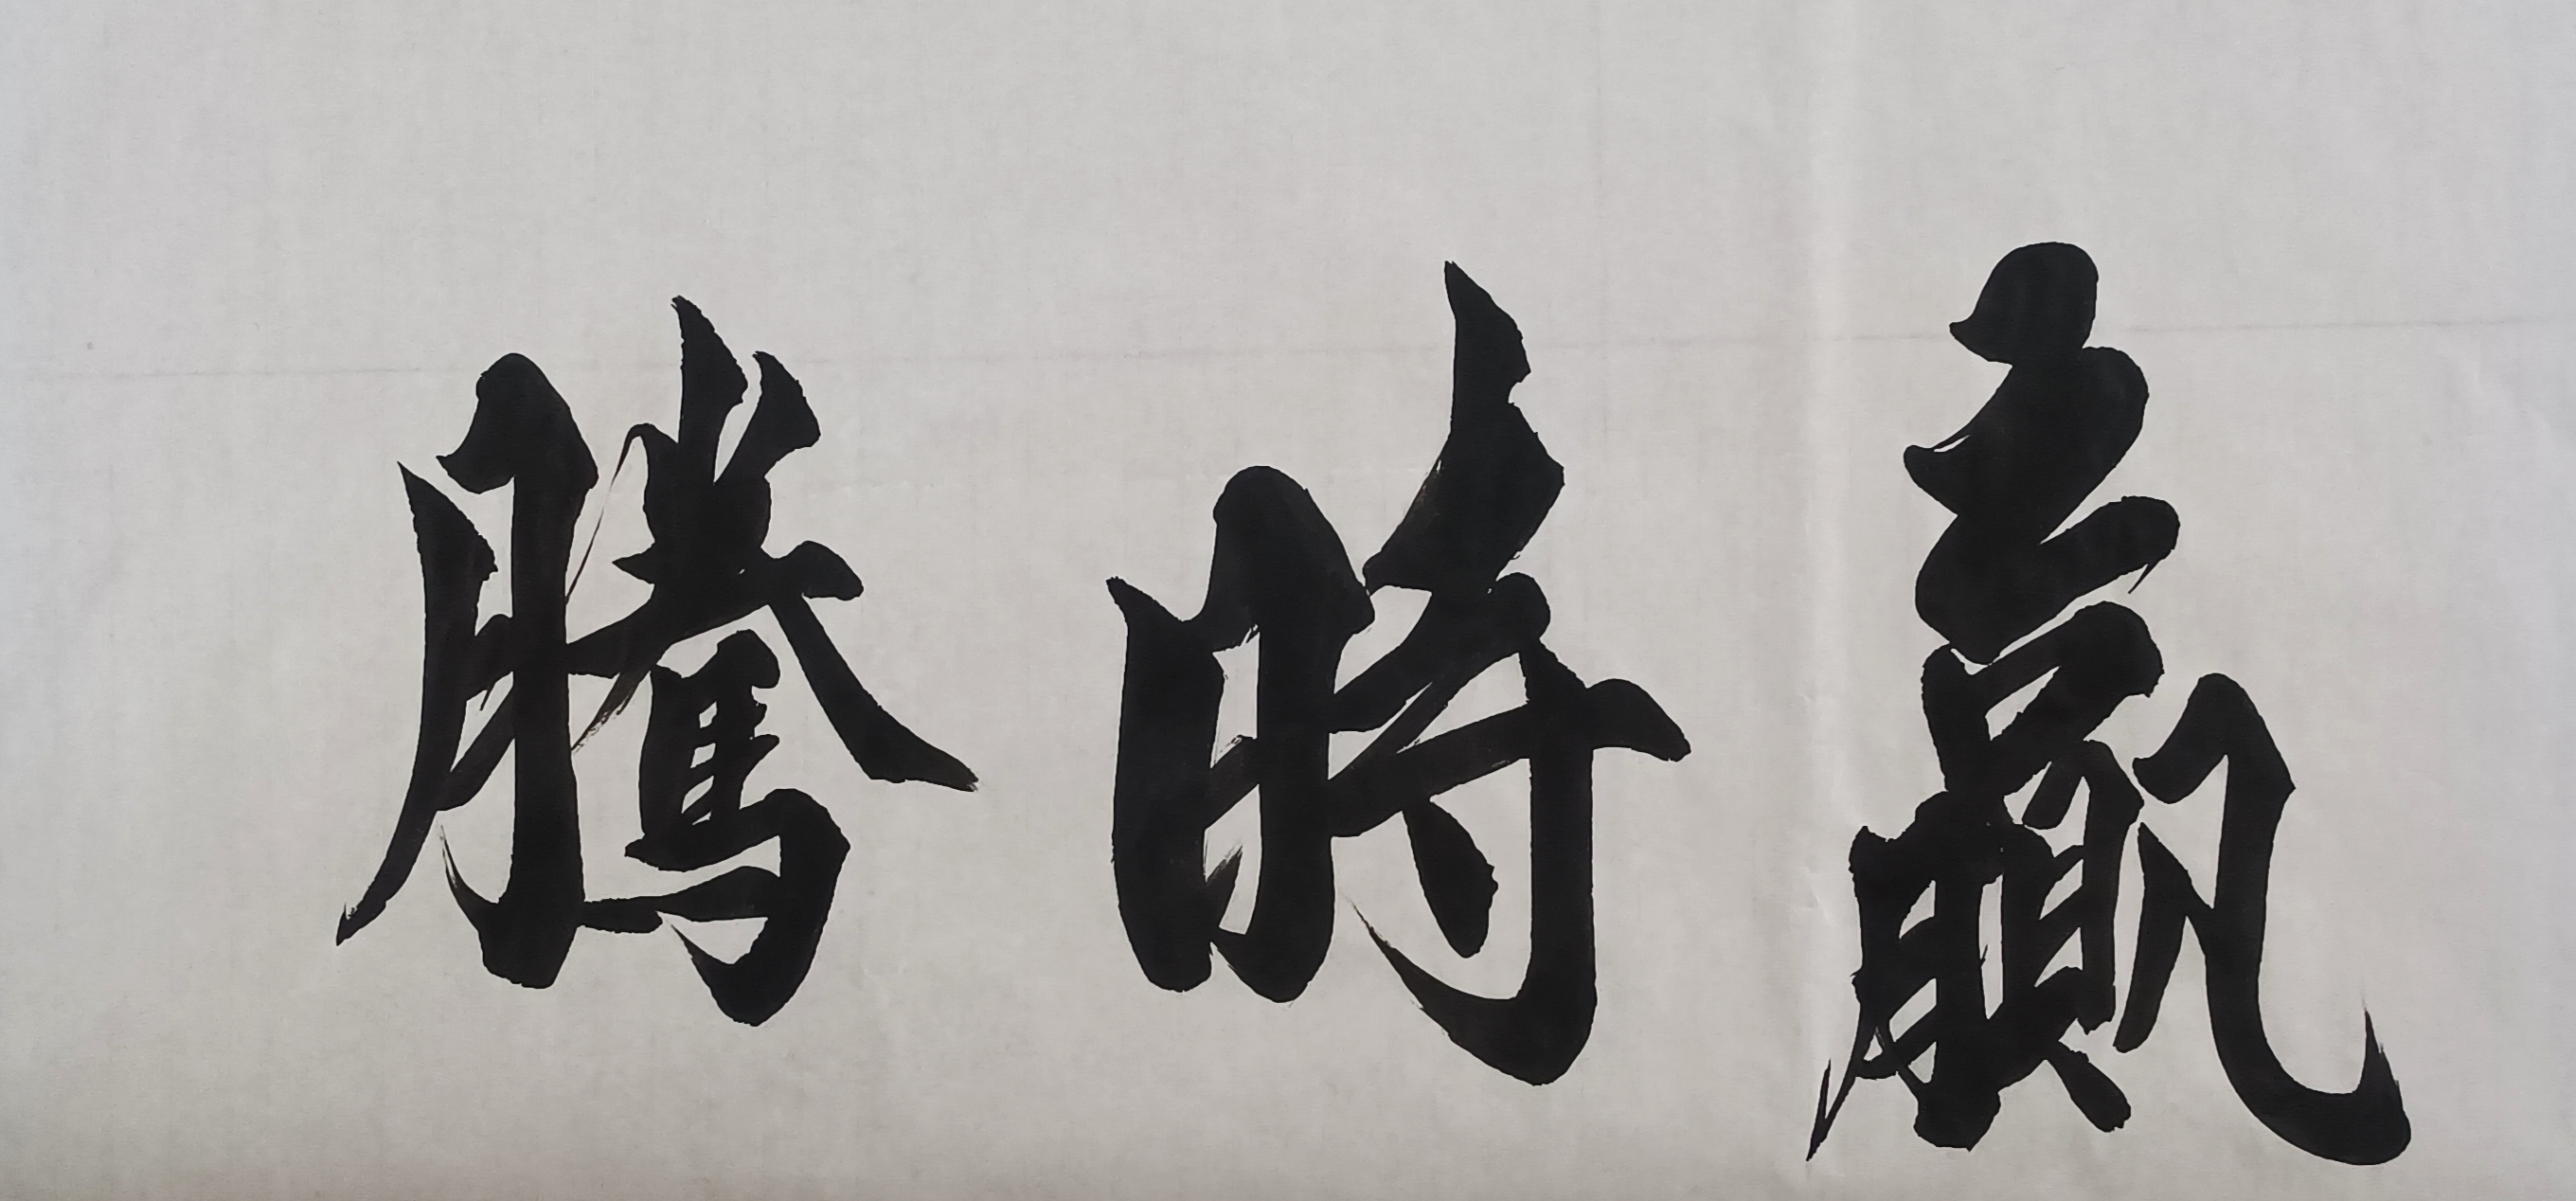 贏時騰